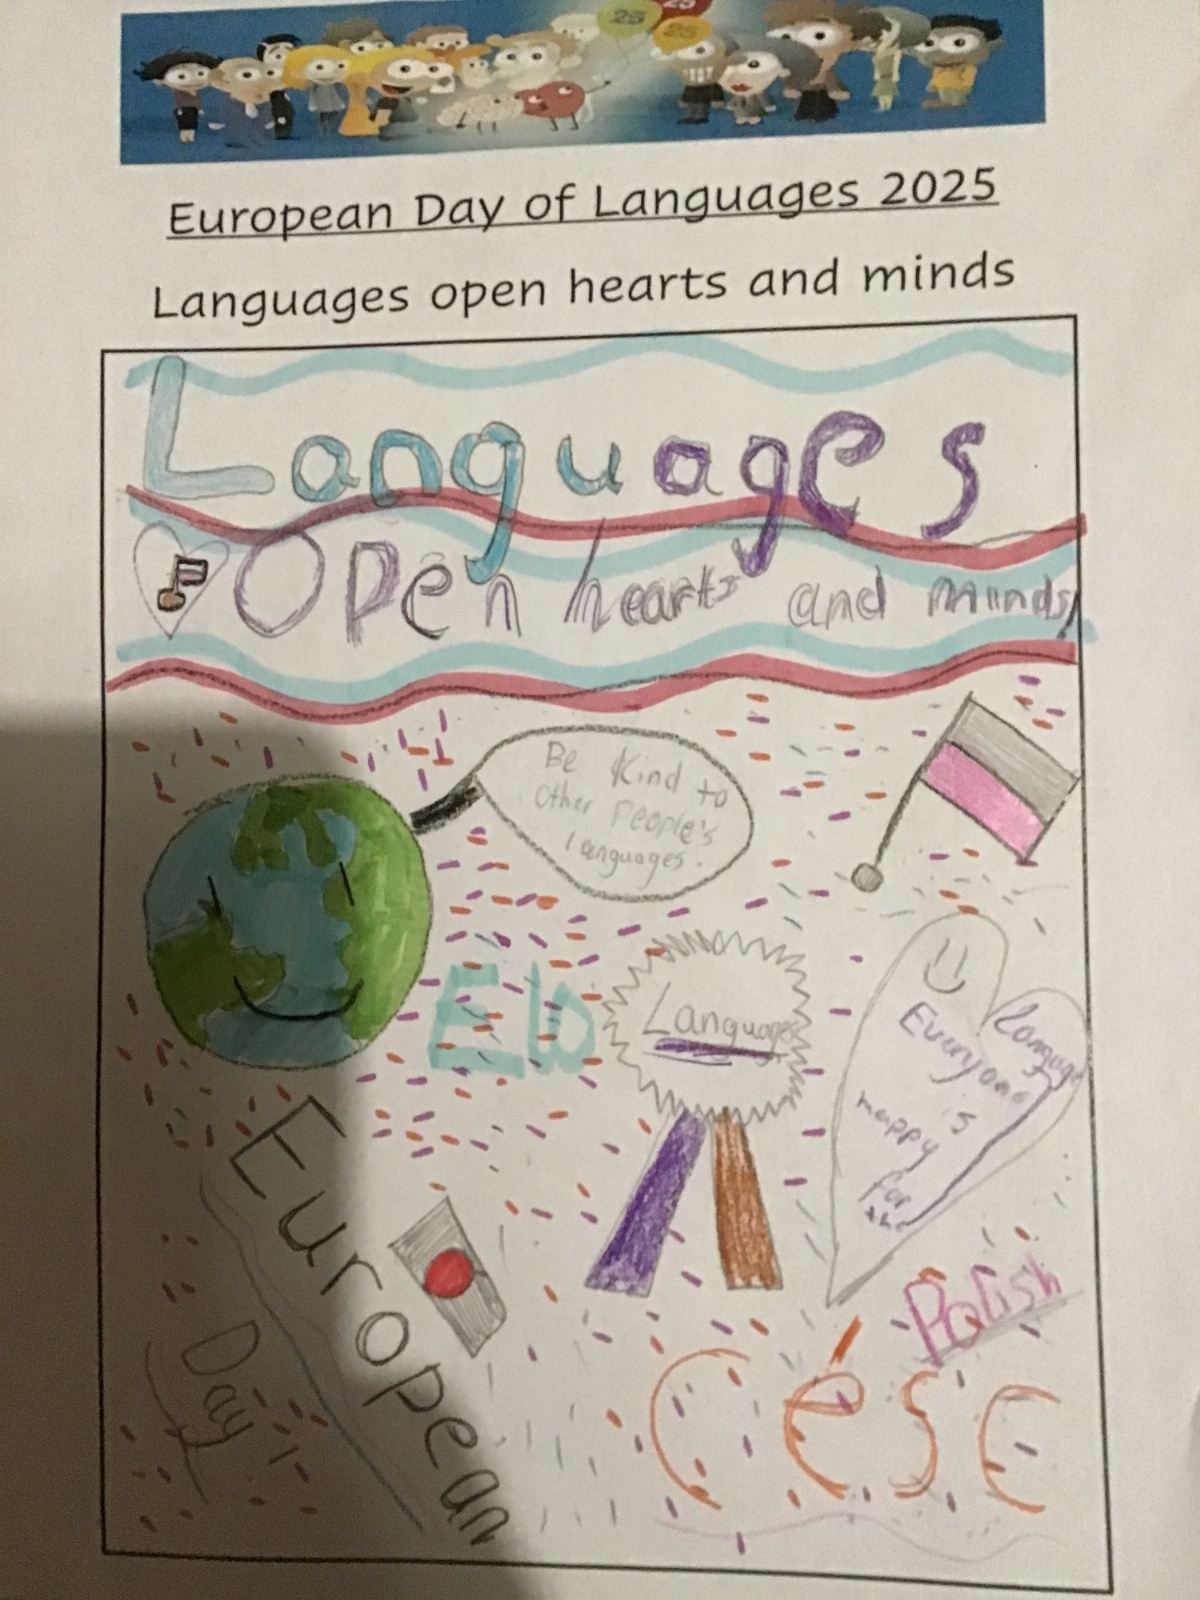 25
25
25
European Day of Languages 2025
Languages open hearts and minds
Languages
Open hearts and minds
Be Kind to
other People's
languages.
Languages
Everyone
is
happy
for
the
language
European
Day
Polish
Césc